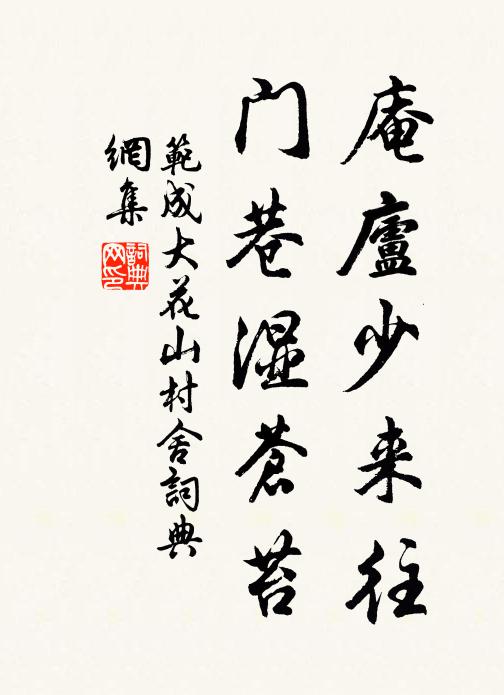 庵廬少来往
門巷湿蒼苔
範成大花山村舍詞典
網集
詞典
网印